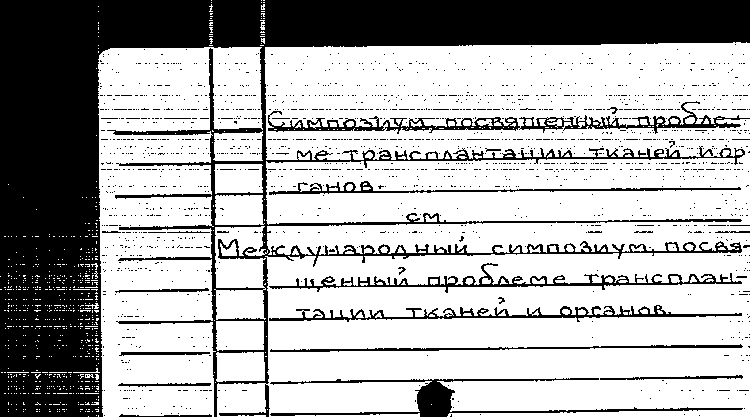 Симпозиум, посвященный пробле-
ме трансплантации тканей и ор
ганов.
см.
Международный симпозиум, посвя-
щенный проблеме трансплан-
тации тканей и органов.